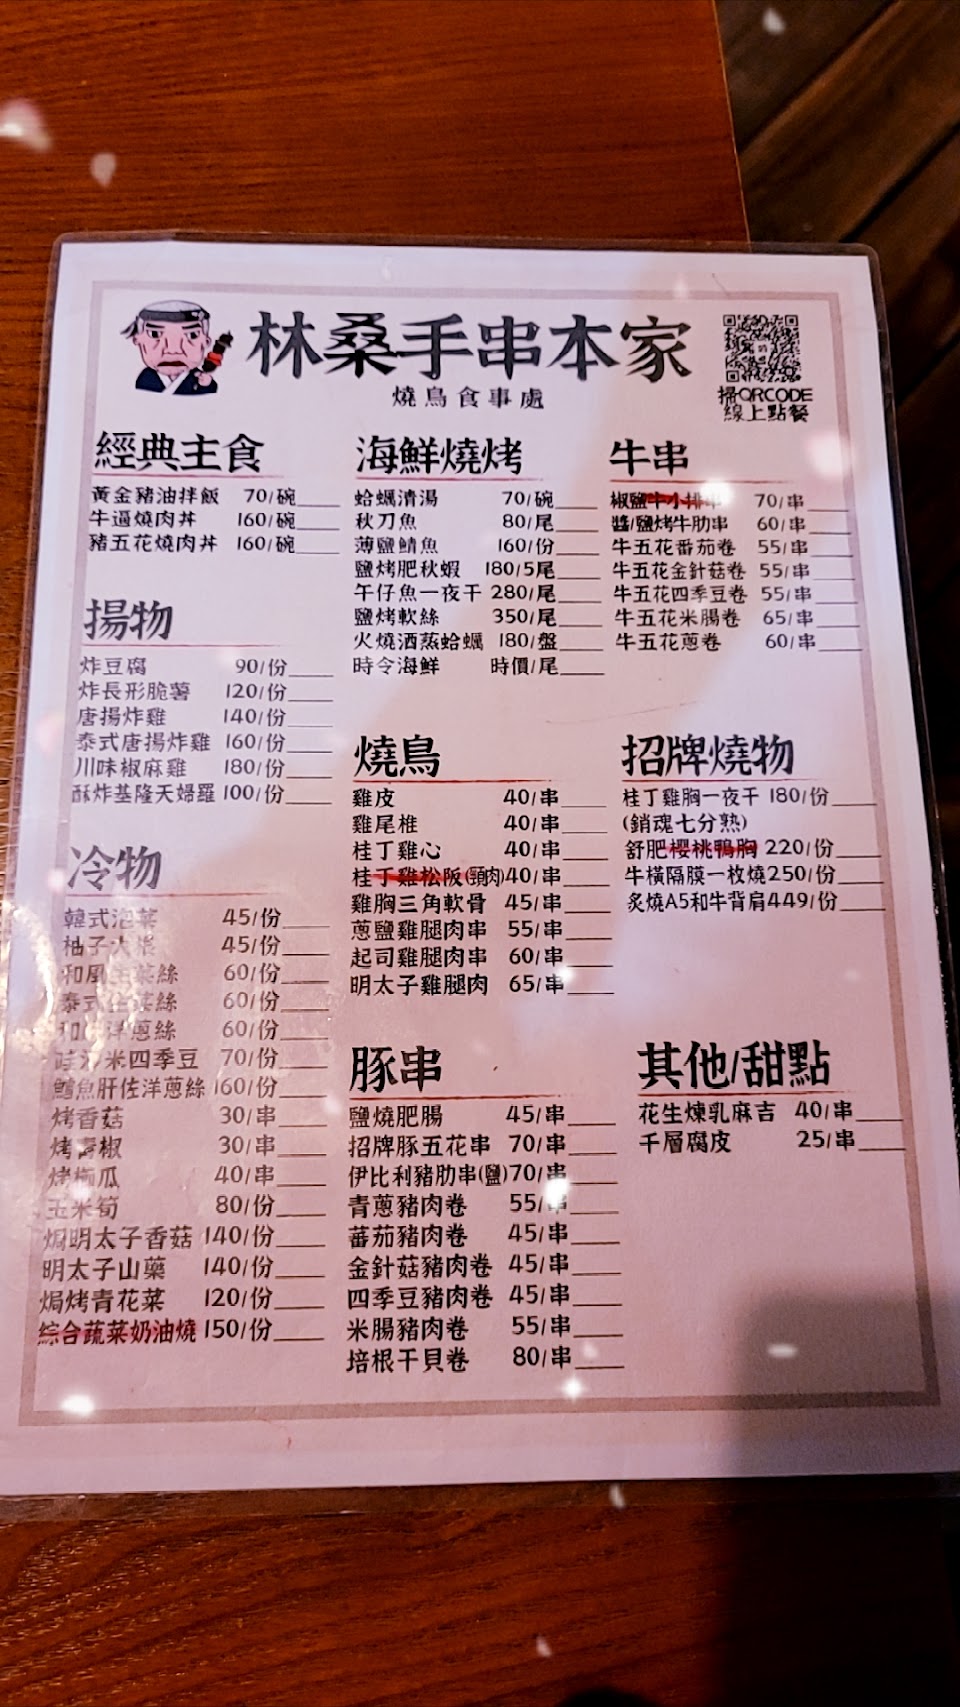 林桑手串本家
燒鳥食事處
掃QRCODE
線上點餐
經典主食
黃金豬油拌飯 70/碗
牛逼燒肉丼 160/碗
豬五花燒肉丼 160/碗
揚物
炸豆腐 90/份
炸長形脆薯 120/份
唐揚炸雞 140/份
泰式唐揚炸雞 160/份
川味椒麻雞 180/份
酥炸基隆天婦羅 100/份
冷物
韓式泡菜 45/份
柚子大根 45/份
和風生菜絲 60/份
泰式生菜絲 60/份
和風洋蔥絲 60/份
米四季豆 70/份
鱈魚肝佐洋蔥絲 160/份
烤香菇 30/串
烤青椒 30/串
烤櫛瓜 40/串
玉米筍 80/份
焗明太子香菇 140/份
明太子山藥 140/份
焗烤青花菜 120/份
綜合蔬菜奶油燒 150/份
海鮮燒烤
蛤蠣清湯 70/碗
秋刀魚 80/尾
薄鹽鯖魚 160/份
鹽烤肥秋蝦 180/5尾
午仔魚一夜干 280/尾
鹽烤軟絲 350/尾
火燒酒蒸蛤蠣 180/盤
時令海鮮 時價/尾
燒鳥
雞皮 40/串
雞尾椎 40/串
桂丁雞心 40/串
桂丁雞松阪(頸肉) 40/串
雞胸三角軟骨 45/串
蔥鹽雞腿肉串 55/串
起司雞腿肉串 60/串
明太子雞腿肉 65/串
豚串
鹽燒肥腸 45/串
招牌豚五花串 70/串
伊比利豬肋串(鹽) 70/串
青蔥豬肉卷 55/串
蕃茄豬肉卷 45/串
金針菇豬肉卷 45/串
四季豆豬肉卷 45/串
米腸豬肉卷 55/串
培根干貝卷 80/串
牛串
椒鹽牛小排串 70/串
醬/鹽烤牛肋串 60/串
牛五花番茄卷 55/串
牛五花金針菇卷 55/串
牛五花四季豆卷 55/串
牛五花米腸卷 65/串
牛五花蔥卷 60/串
招牌燒物
桂丁雞胸一夜干 180/份
(銷魂七分熟)
舒肥櫻桃鴨胸 220/份
牛橫隔膜一枚燒 250/份
炙燒A5和牛背肩 449/份
其他/甜點
花生煉乳麻吉 40/串
千層腐皮 25/串